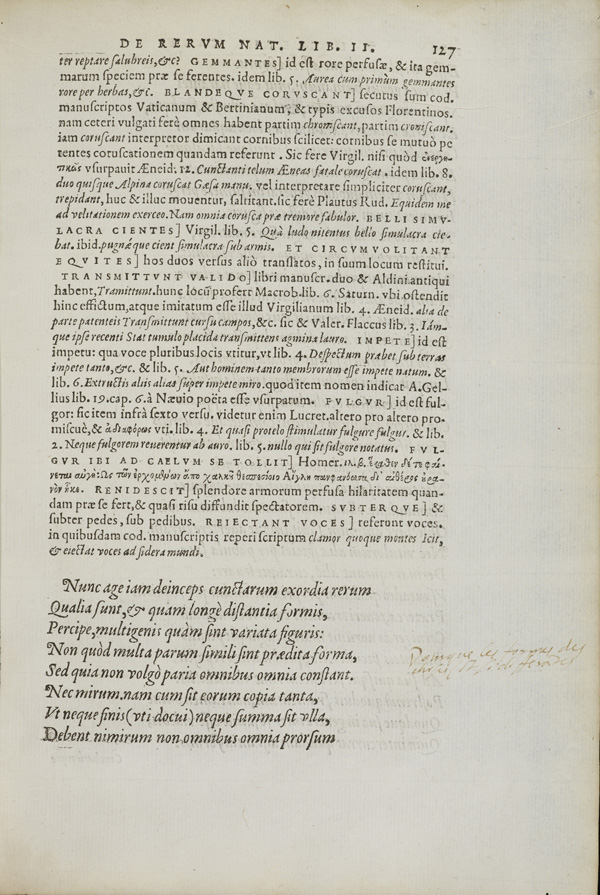 DE RERVM NAT. LIB. II. 127
ter reptare salubreis,&c? GEMMANTES] id est rore perfusæ, & ita gem-
marum speciem præ se ferentes. idem lib. 5. Aurea cum primùm gemmantes
rore per herbas,&c. BLANDEQVE CORVSCANT] secutus sum cod.
manuscriptos Vaticanum & Bertinianum, & typis excusos Florentinos.
nam ceteri vulgati ferè omnes habent partim chromscant, partim croniscant.
iam coruscant interpretor dimicant cornibus scilicet: cornibus se mutuò pe
tentes coruscationem quandam referunt. Sic fere Virgil. nisi quòd
vsurpauit Æneid. 12. Cunctanti telum Æneas fatale coruscat. idem lib. 8.
duo quisque Alpina coruscat Gæsa manu. vel interpretare simpliciter coruscant,
trepidant, huc & illuc mouentur, saltitant. sic ferè Plautus Rud. Equidem me
ad velitationem exerceo. Nam omnia corusca præ tremore fabulor. BELLI SIMV-
LACRA CIENTES] Virgil. lib. 5. Quà ludo nitentus belio simulacra cie-
bat. ibid. pugnæque cient simulacra sub armis. ET CIRCVMVOLITANT
EQVITES] hos duos versus aliò translatos, in suum locum restitui.
TRANSMITTVNT VALIDO] libri manuscr. duo & Aldini antiqui
habent, Tramittunt. hunc locū profert Macrob. lib. 6. Saturn. vbi ostendit
hinc effictum, atque imitatum esse illud Virgilianum lib. 4. Æneid. alia de
parte patenteis Transmittunt cursu campos,&c. sic & Valer. Flaccus lib. 3. Iám-
que ipse recenti Stat tumulo placida transmittens agmina lauro. IMPETE] id est
impetu: qua voce pluribus locis vtitur, vt lib. 4. Despectum præbet sub terras
impete tanto,&c. & lib. 5. Aut hominem tanto membrorum esse impete natum. &
lib. 6. Extructis aliis alias super impete miro. quod item nomen indicat A. Gel-
lius lib. 19. cap. 6. à Næuio poëta esse vsurpatum. FVLGVR] id est ful-
gor: sic item infrà sexto versu. videtur enim Lucret. altero pro altero pro-
miscuè, & ἀδιαφόρως vti. lib. 4. Et quasi protelo stimulatur fulgure fulgur. & lib.
2. Neque fulgorem reuerentur ab auro. lib. 5. nullo qui sit fulgore notatus. FVL-
GVR IBI AD CAELVM SE TOLLIT] Homer.
RENIDESCIT] splendore armorum perfusa hilaritatem quan-
dam præ se fert, & quasi risu diffundit spectatorem. SVBTERQVE] &
subter pedes, sub pedibus. REIECTANT VOCES] referunt voces.
in quibusdam cod. manuscriptis reperi scriptum clamor quoque montes Icit,
& eiectat voces ad sidera mundi.
Nunc age iam deinceps cunctarum exordia rerum
Qualia sunt, & quam longè distantia formis,
Percipe, multigenis quàm sint variata figuris:
Non quòd multa parum simili sint prædita forma,
Sed quia non volgò paria omnibus omnia constant.
Nec mirum. nam cum sit eorum copia tanta,
Vt neque finis (vti docui) neque summa sit vlla,
Debent nimirum non omnibus omnia prorsum